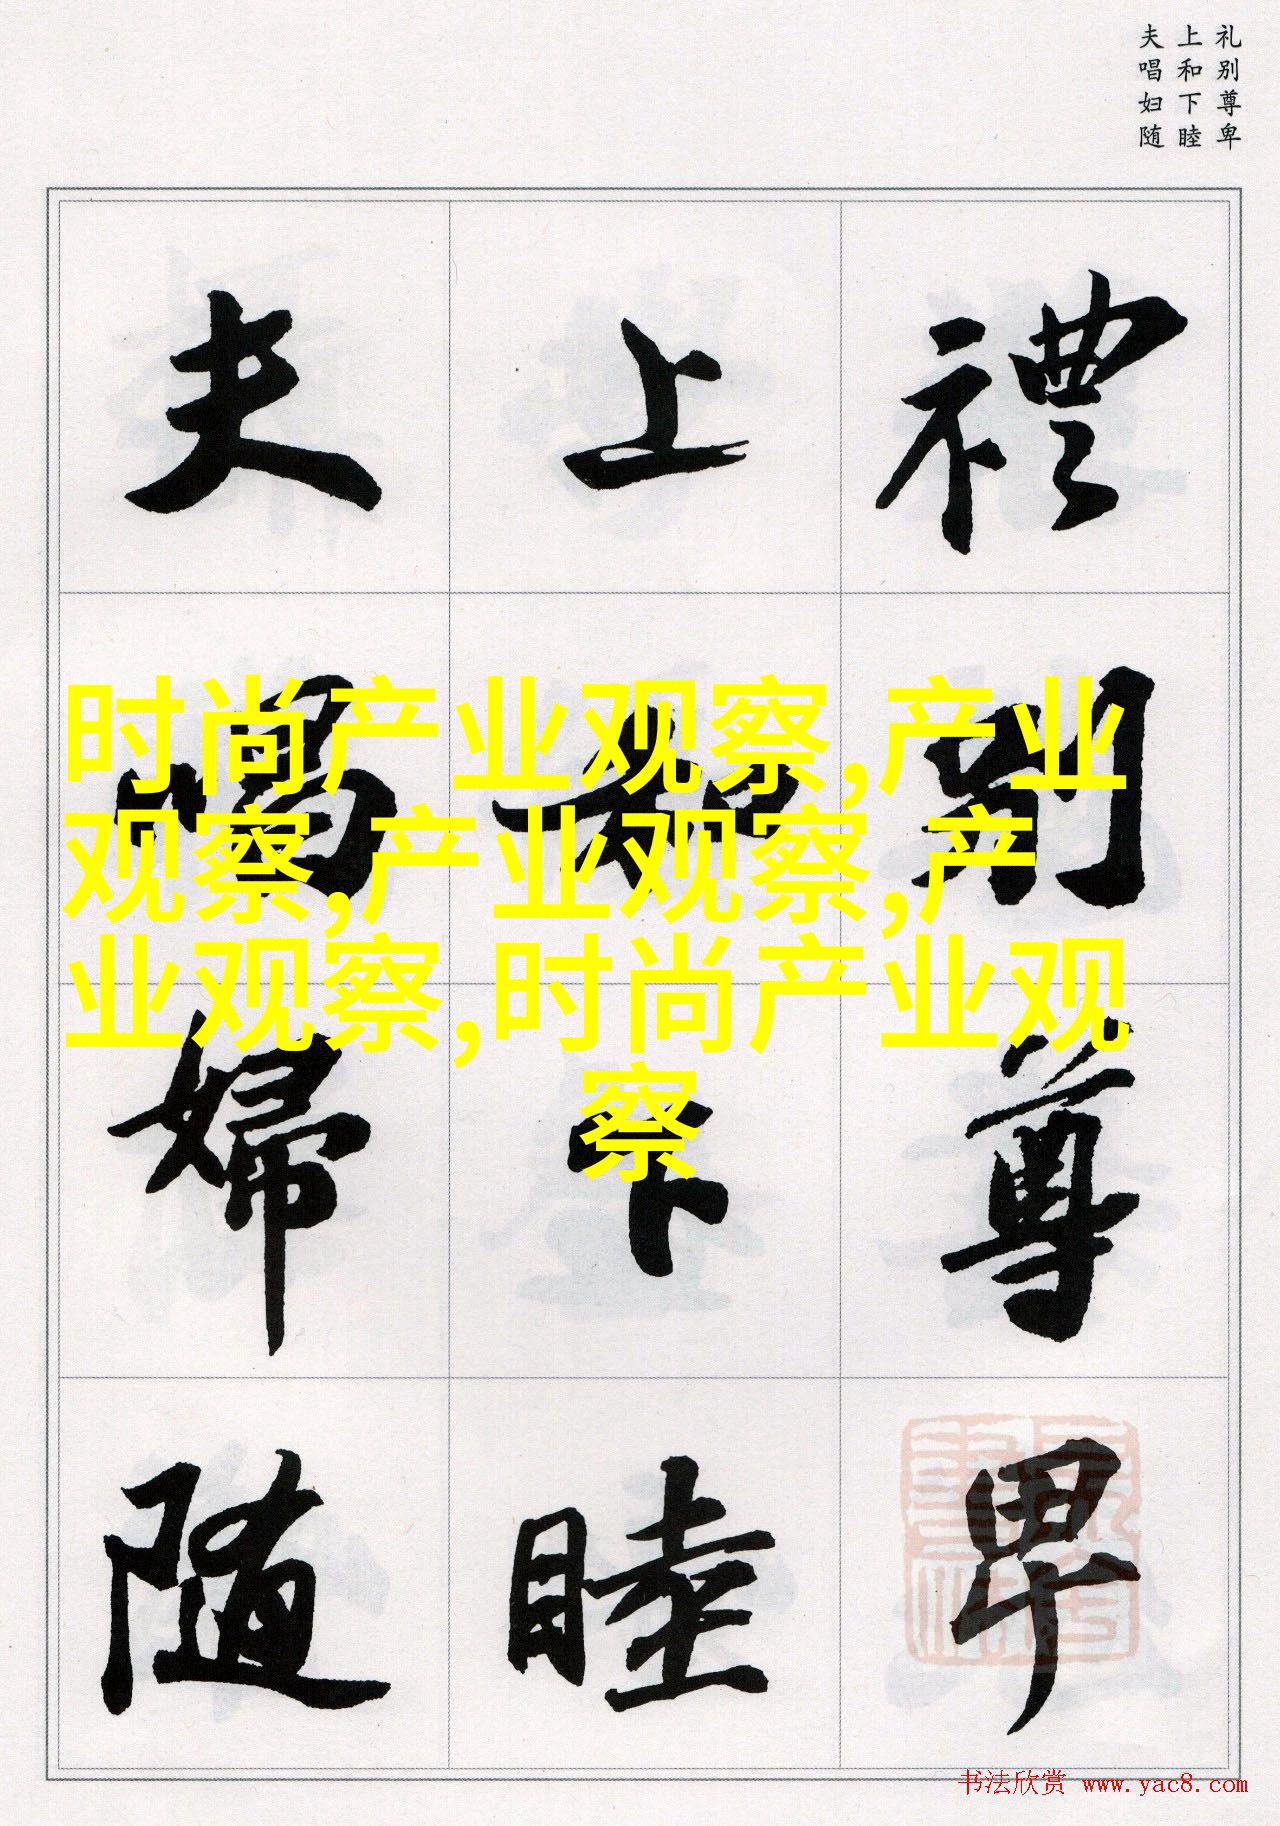 礼别尊卑
上和下睦
夫唱妇随
禮別尊卑
上和下睦
夫唱婦随
时尚产业观察,产业
观察,产业观察,产
业观察,时尚产业观
察
书法欣赏 www.yac8.com